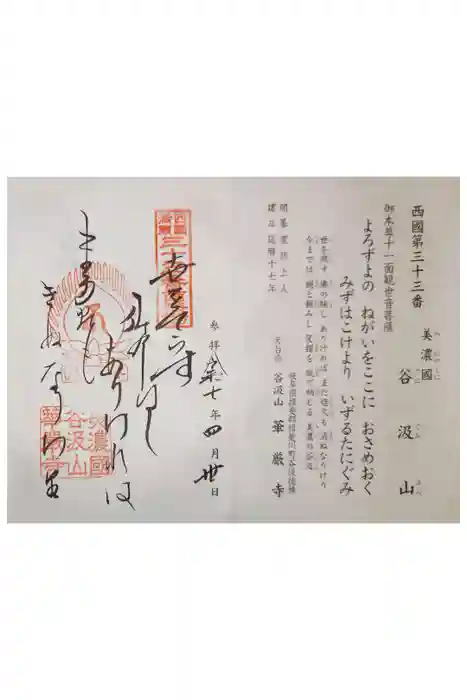 西國第三十三番
美濃國 谷汲山
みののくに たにぐみさん
御本尊十一面観世音菩薩
よろずよの ねがいをここに おさめおく
みずはこけより いずるたにぐみ
開基 豊然上人
建立 延暦十七年
世を照す 佛の験し ありければ まだ燈火も 消ぬなりけり
今までは 親と頼みし 笈摺を 脱て納むる 美濃の谷汲
岐阜県揖斐郡揖斐川町谷汲徳積
天台宗 谷汲山 華厳寺
参拝 十年四月卅日
世を照す
佛のしるし
ありければ
まだともしびも
きえぬなりけり
西國
三十三番
美濃國
谷汲山
華厳寺